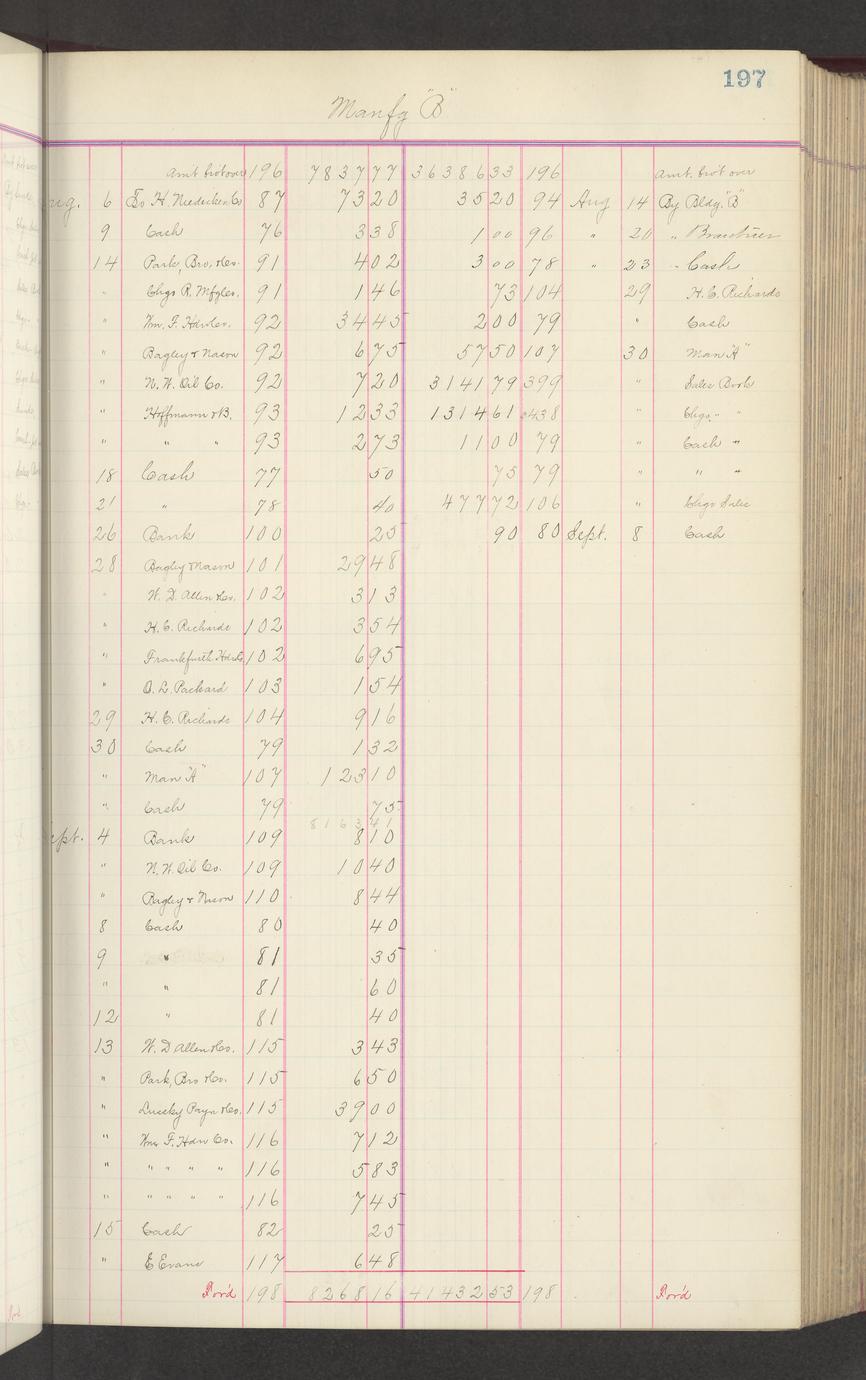 197
Manfg "B"
Amt bro't over 196 7837 77 36386 33 196 Amt. bro't over
Aug. 6 To H. Niedecken Co 87 73 20 35 20 94 Aug 14 By Bldg. "B"
9 Cash 76 3 38 1 00 96 " 20 "
14 Park, Bro, & Co. 91 4 02 3 00 78 " 23 " Cash
" Chgs R. Mfg Co. 91 1 46 73 104 29 H. C. Richards
" Wm. F. Hdw Co. 92 34 45 2 00 79 " Cash
" Bagley & Nason 92 6 75 57 50 107 30 Man "A"
" N. W. Oil Co. 92 7 20 3141 79 399 " Sales Book
" Hoffmann & B. 93 12 33 1314 61 438 " Chgs. " "
" " " 93 2 73 11 00 79 " Cash "
18 Cash 77 50 75 79 " " "
21 " 78 40 477 72 106 " Chgs Sales
26 Bank 100 25 90 80 Sept. 8 Cash
28 Bagley & Nason 101 29 48
" W. D. Allen & Co. 102 3 13
" H. C. Richards 102 3 54
" Frankfurth Hdw Co 102 6 95
" O. L. Packard 103 1 54
29 H. C. Richards 104 9 16
30 Cash 79 1 32
" Man "A" 107 123 10
" Cash 79 75
8163 41
Sept. 4 Bank 109 8 10
" N. W. Oil Co. 109 10 40
" Bagley & Nason 110 8 44
8 Cash 80 40
9 " 81 35
" " 81 60
12 " 81 40
13 W. D Allen & Co. 115 3 43
" Park, Bro & Co. 115 6 50
" Payn & Co. 115 39 00
" Wm. F. Hdw Co. 116 7 12
" " " " " 116 5 83
" " " " " 116 7 45
15 Cash 82 25
" E Evans 117 6 48
For'd 198 8268 16 41432 53 198 For'd